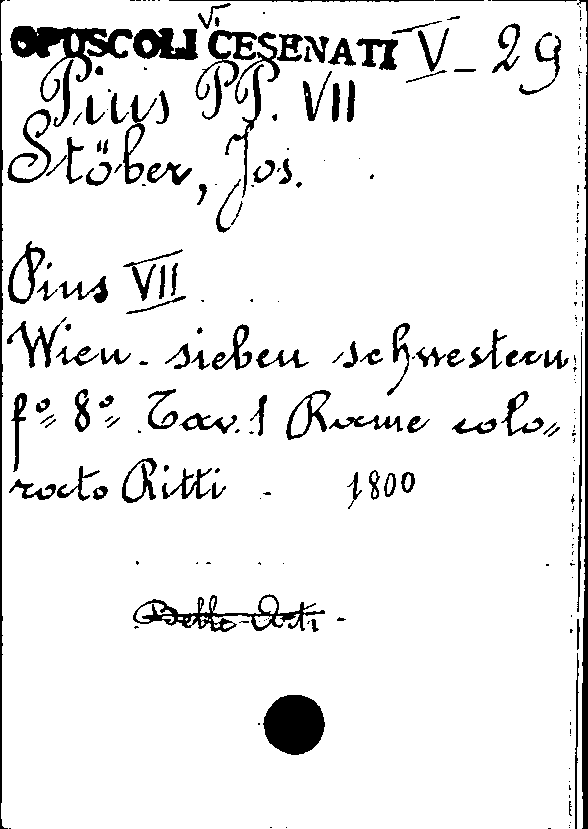 V.
OPUSCOLI CESENATI V - 29
Pius PP. VII
Stöber, Jos.
Pius VII
Wien - sieben schwestern
fº 8º Tav. 1 Rame colo=
rato Ritti - 1800
Belle Arti -